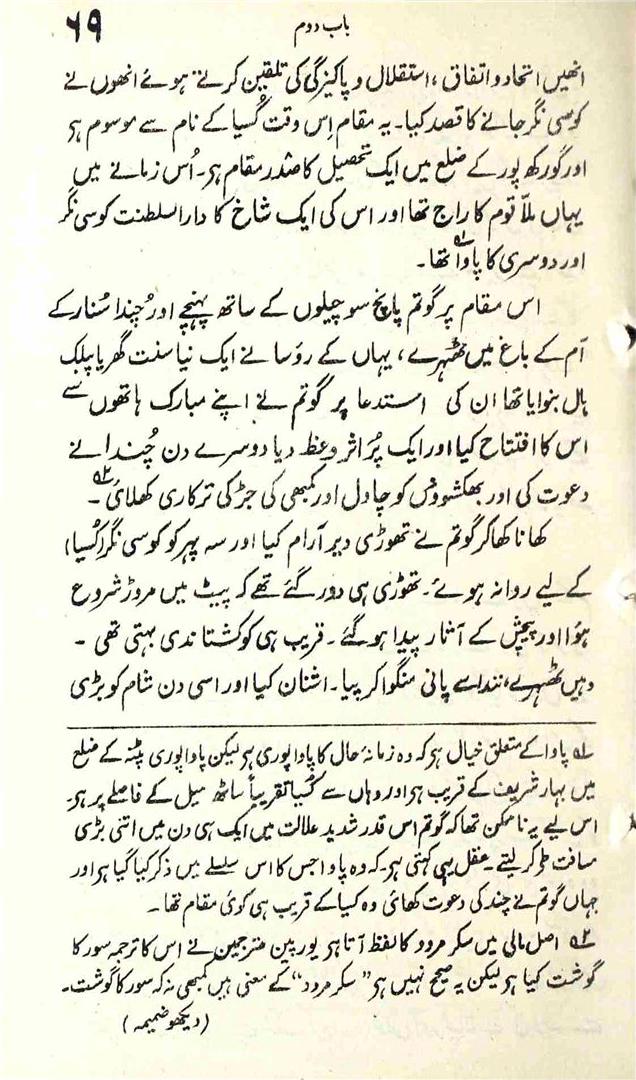 باب دوم
۶۹
انھیں اتحاد و اتفاق، استقلال و پاکیزگی کی تلقین کرتے ہوئے انھوں نے
کوسی نگر جانے کا قصد کیا۔ یہ مقام اِس وقت کُسیا کے نام سے موسوم ہو
اور گورکھپور کے ضلع میں ایک تحصیل کا صدر مقام ہو۔ اُس زمانے میں
یہاں ملّا قوم کا راج تھا اور اس کی ایک شاخ کا دارالسلطنت کوسی نگر
اور دوسری کا پاوا۱ؔ تھا۔
اس مقام پر گوتم پانچ سو چیلوں کے ساتھ پہنچے اور چُندا سُنار کے
آم کے باغ میں ٹھہرے، یہاں کے رؤسا نے ایک نیا سنت گھر یا پبلک
ہال بنوایا تھا ان کی استدعا پر گوتم نے اپنے مبارک ہاتھوں سے
اس کا افتتاح کیا اور ایک پُر اثر وعظ دیا دوسرے دن چُندا نے
دعوت کی اور بھکشوؤں کو چاول اور کمبھی کی جڑ کی ترکاری کھلائی۲ؔ۔
کھانا کھا کر گوتم نے تھوڑی دیر آرام کیا اور سہ پہر کو کوسی نگر (کُسیا)
کے لیے روانہ ہوئے۔ تھوڑی ہی دور گئے تھے کہ پیٹ میں مروڑ شروع
ہؤا اور پیچش کے آثار پیدا ہو گئے۔ قریب ہی کوکشتا ندی بہتی تھی۔
وہیں ٹھہرے، نندا سے پانی منگوا کر پیا۔ اشنان کیا اور اسی دن شام کو بڑی
۱ؔ پاوا کے متعلق خیال ہو کہ وہ زمانۂ حال کا پاواپوری ہو لیکن پاواپوری پٹنہ کے ضلع
میں بہار شریف کے قریب ہو اور وہاں سے کُسیا تقریباً ساٹھ میل کے فاصلے پر ہو۔
اس لیے یہ ناممکن تھا کہ گوتم اس قدر شدید علالت میں ایک ہی دن میں اتنی بڑی
مسافت طو کر لیتے۔ عقل یہی کہتی ہو۔ کہ وہ پاوا جس کا اس سلسلے میں ذکر کیا گیا ہو اور
جہاں گوتم نے چند کی دعوت کھائی وہ کسیا کے قریب ہی کوئی مقام تھا۔
۲ؔ اصل پالی میں سکر مردو کا لفظ آتا ہو یورپین مترجمین نے اس کا ترجمہ سور کا
گوشت کیا ہو لیکن یہ صحیح نہیں ہو "سکر مردو" کے معنی ہیں کمبھی نہ کہ سور کا گوشت۔
(دیکھو ضمیمہ)